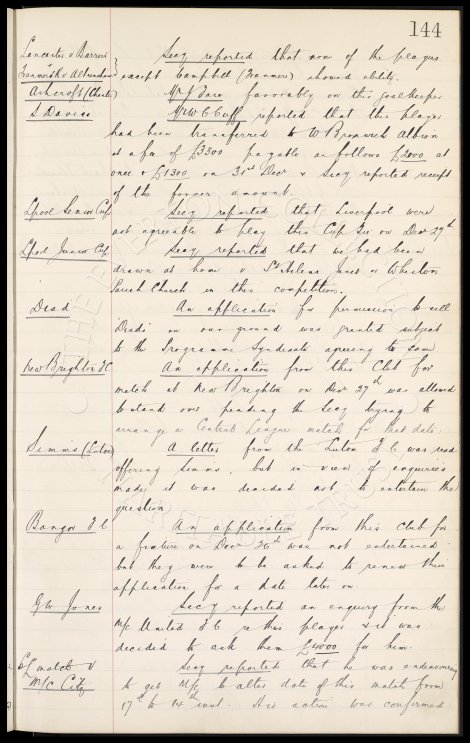 144
Lancaster v Barrow
Secy reported that none of the players
Tranmere R v Altrincham
except Campbell (Tranmere) showed ability.
Ashcroft (Chester)
Mr J favorably on this goalkeeper
S. Davies
Mr W C Cuff reported that this player
had been transferred to W Bromwich Albion
at a fee of £3300 payable as follows £2000 at
once & £1300 on 31st Decr & Secy reported receipt
of the former amount.
Lpool Senior Cup
Secy reported that Liverpool were
not agreeable to play this Cup tie on Decr 27th
Lpool Junior Cup
Secy reported that we had been
drawn at home v St Helens Junct or Whiston
Parish Church in this competition.
Dead
An application for permission to sell
'Dead' on our ground was granted subject
to the Programme Syndicate agreeing to same
New Brighton F C
An application from this Club for
match at New Brighton on Decr 27th was allowed
to stand over pending the Secy trying to
arrange a Central League match for that date.
Simms (Luton)
A letter from the Luton F C was read
offering Simms, but in view of enquiries
made it was decided not to entertain the
question
Bangor F C
An application from this club for
a fixture on Decr 26th was not entertained
but they were to be asked to renew their
application for a date later on
G W Jones
Secy reported an enquiry from the
M/c United F C re this player & it was
decided to ask them £4000 for him.
C/L match v
M/c City
Secy reported that he was endeavouring
to get M/c to alter date of this match from
17th to 14th inst. His action was confirmed